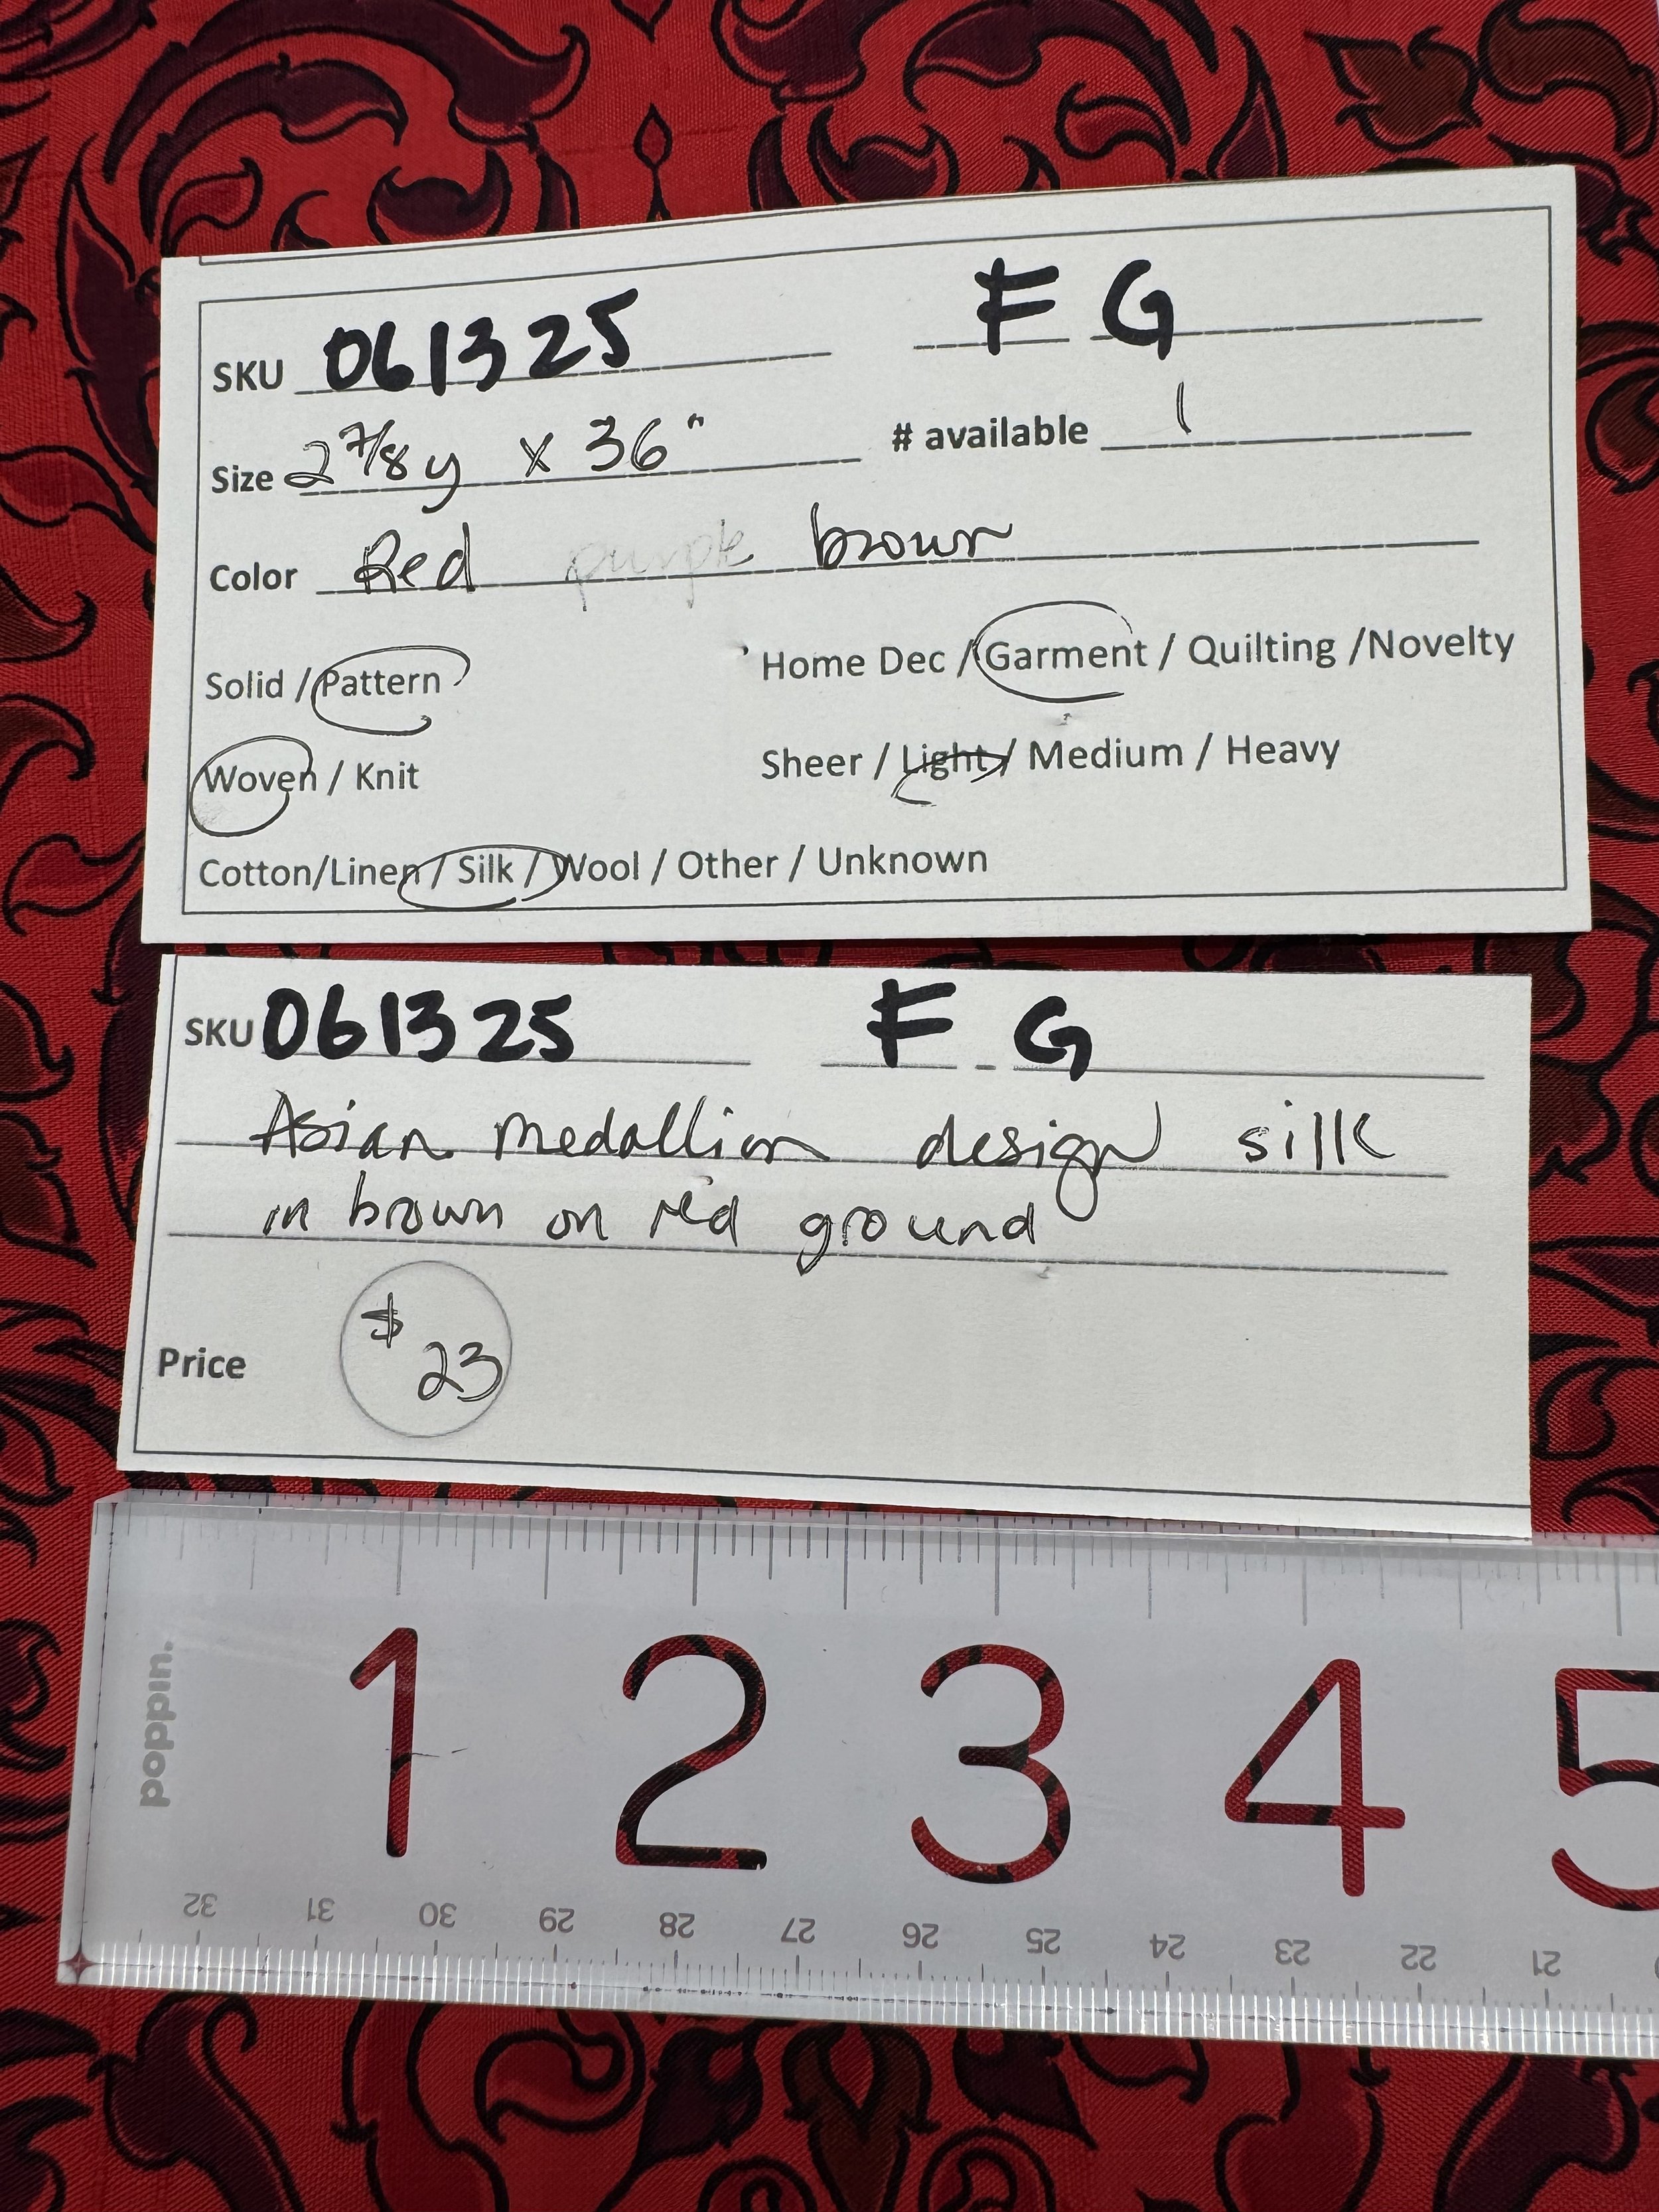 SKU 061325 F G
Size 2 7/8y x 36" # available 1
Color Red purple brown
Solid / Pattern Home Dec / Garment / Quilting /Novelty
Woven / Knit Sheer / Light / Medium / Heavy
Cotton/Linen / Silk / Wool / Other / Unknown
SKU 061325 F G
Asian medallion design silk
in brown on red ground
Price $23
poppin.
1 2 3 4 5
32 31 30 29 28 27 26 25 24 23 22 21